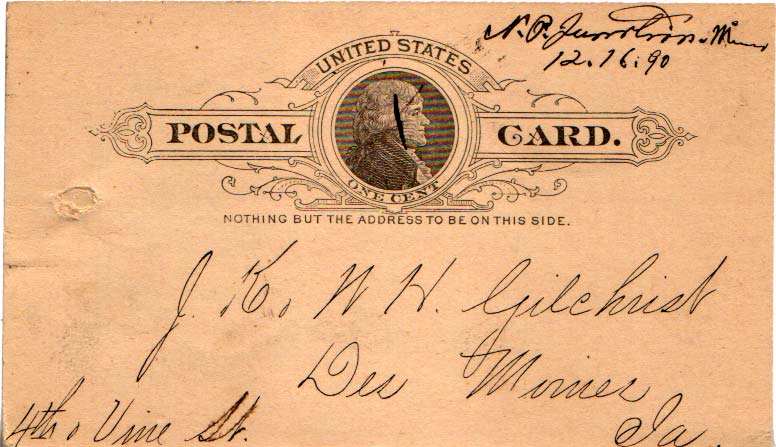 N. P. Junction. Minn
12. 16. 90
UNITED STATES
POSTAL CARD.
ONE CENT
NOTHING BUT THE ADDRESS TO BE ON THIS SIDE.
J. K. & W. H. Gilchrist
Des Moines
4th & Vine St. Ia.